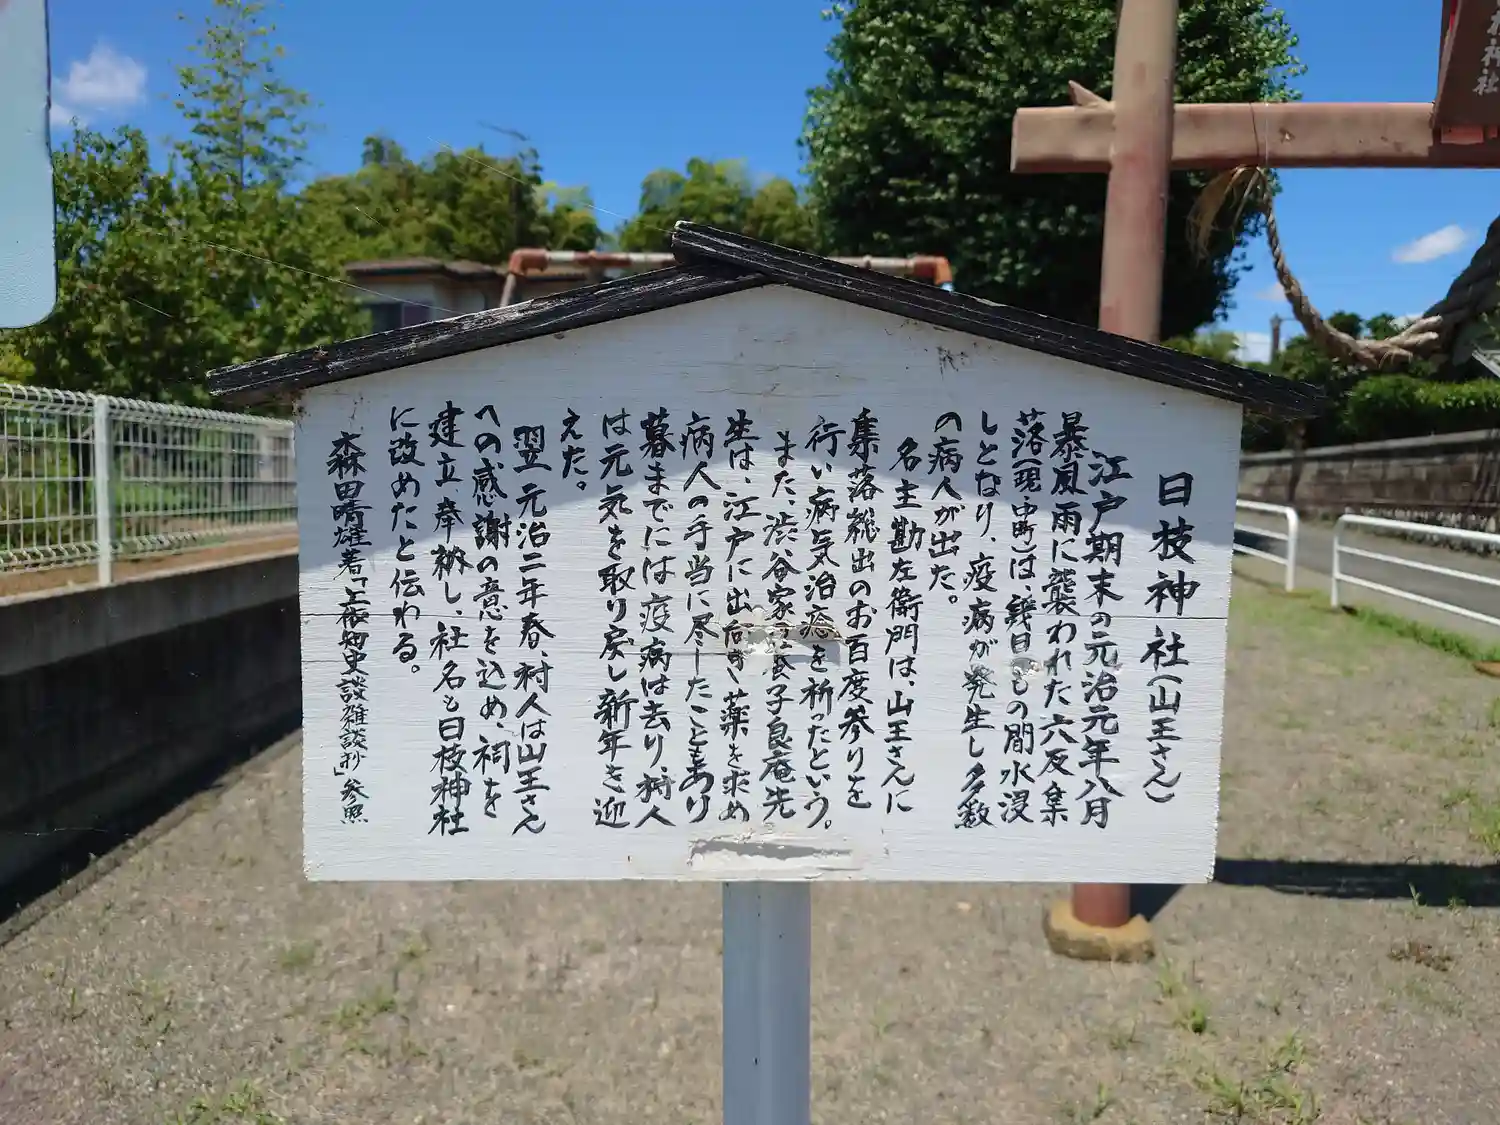 日枝神社(山王さん)
江戸期末の元治元年八月
暴風雨に襲われた六反集
落(現・中町)は、幾日もの間水浸
しとなり、疫病が発生し多数
の病人が出た。
名主勘左衛門は、山王さんに
集落総出のお百度参りを
行い病気治癒を祈ったという。
また、渋谷家の養子良庵先
生は、江戸に出向き薬を求め
病人の手当に尽したこともあり
暮までには疫病は去り、村人
は元気を取り戻し新年を迎
えた。
翌元治二年春、村人は山王さん
への感謝の意を込め、祠を
建立、奉納し、社名も日枝神社
に改めたと伝わる。
森田晴雄著「上依知史談雑談抄」参照
枝神社